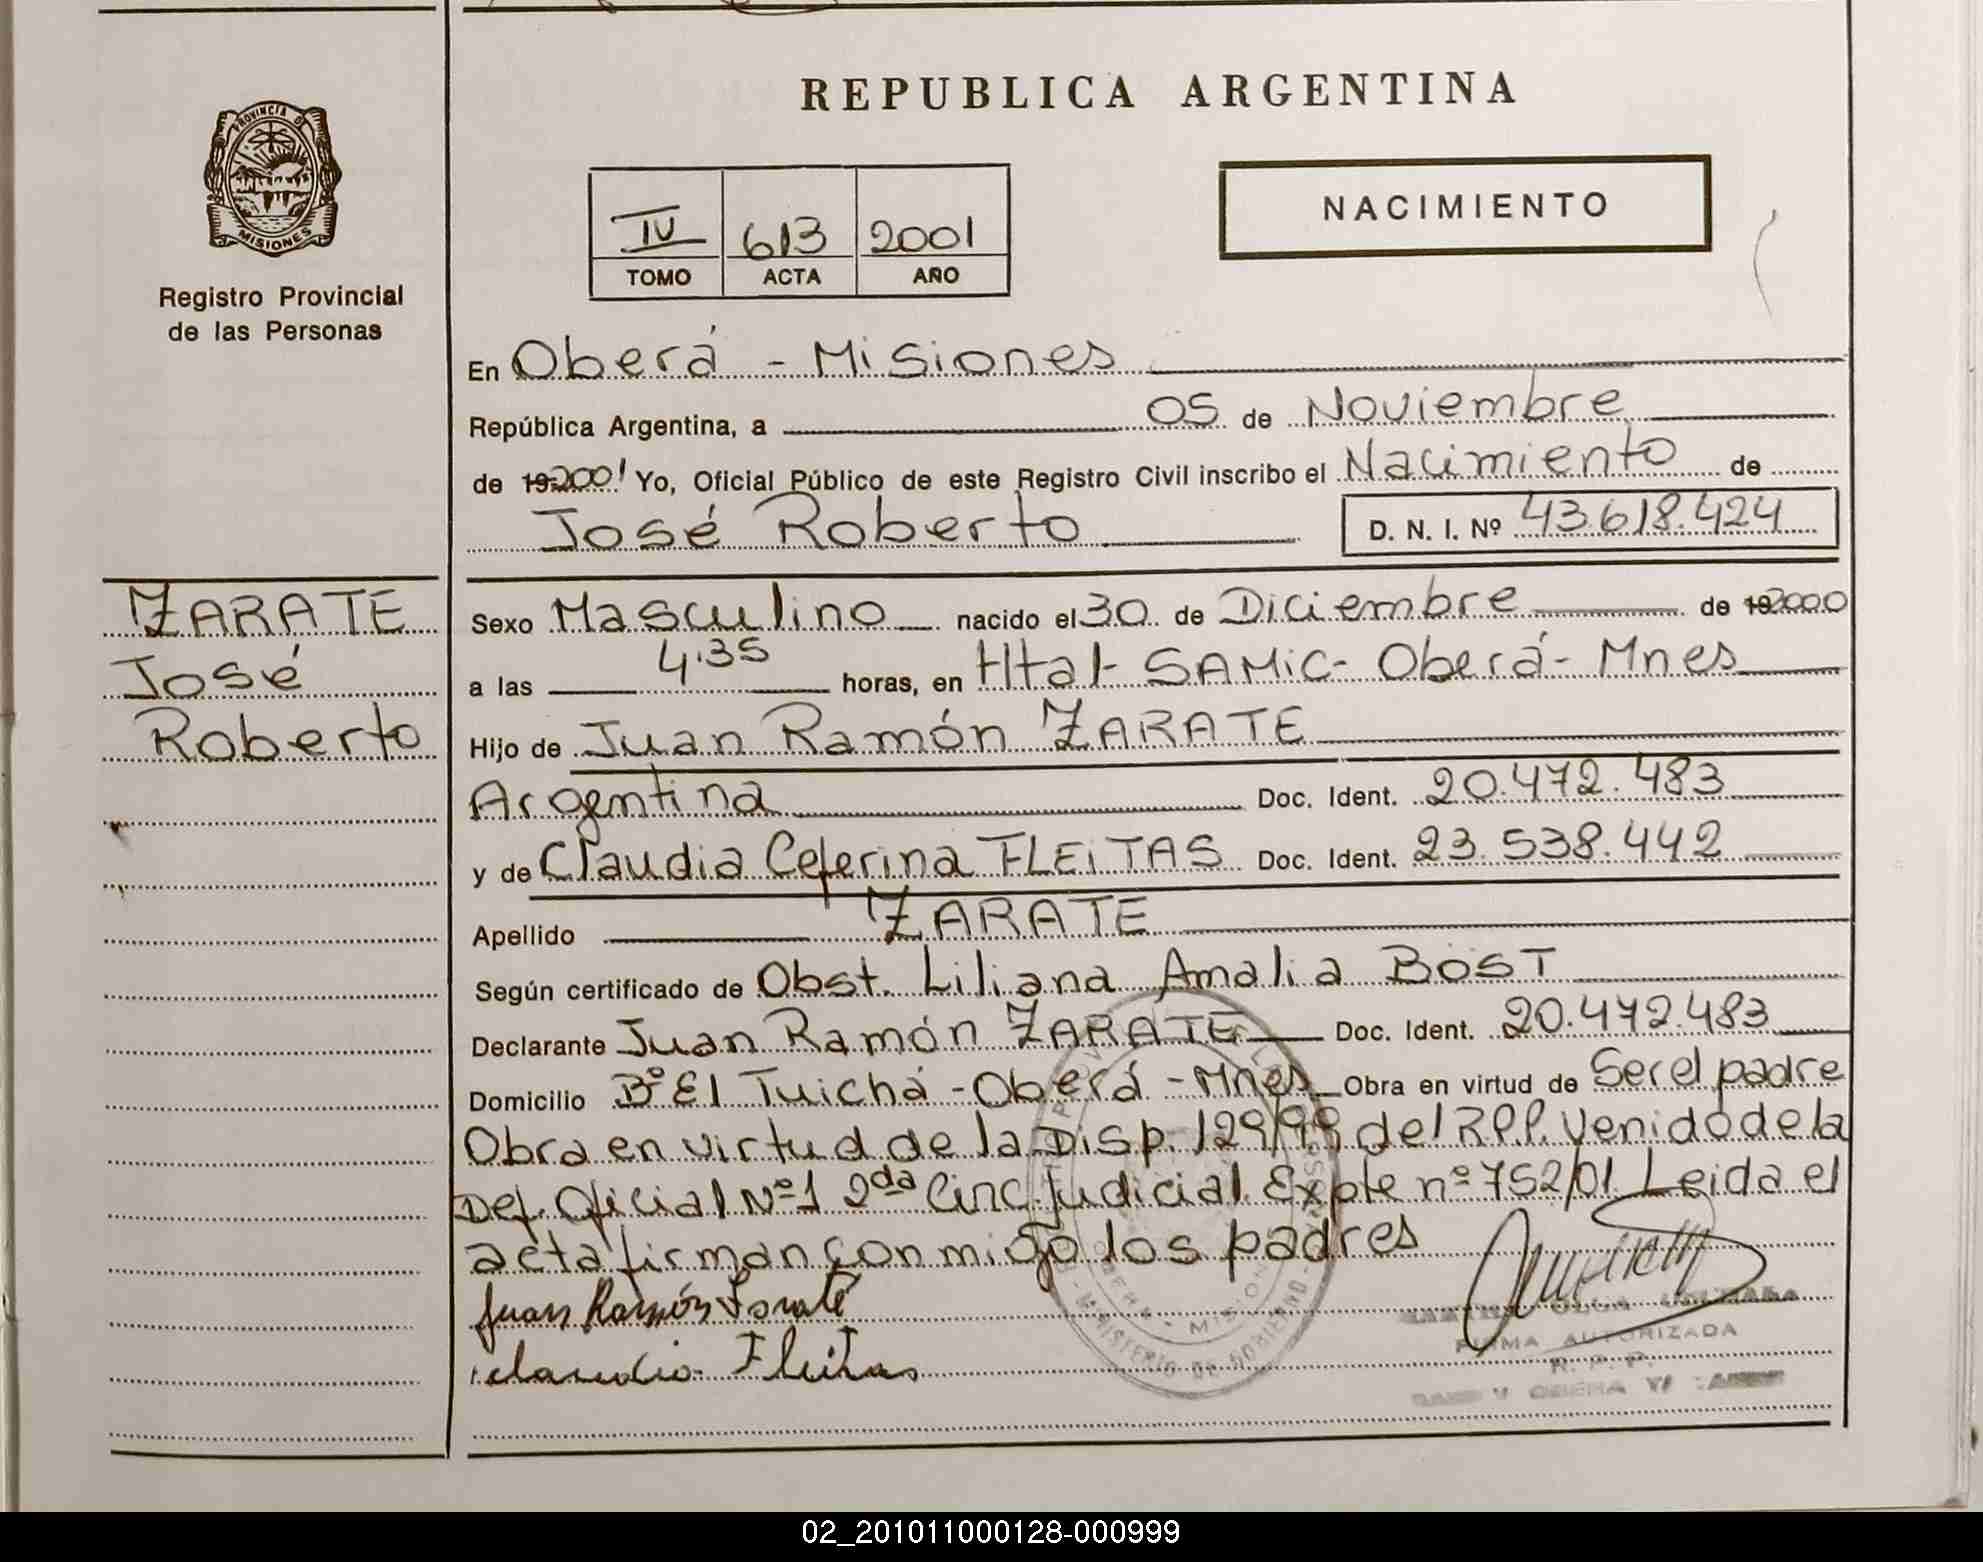 REPUBLICA ARGENTINA
PROVINCIA D
MISIONES
Registro Provincial
de las Personas
IV 613 2001
TOMO ACTA AÑO
NACIMIENTO
En Oberá - Misiones
República Argentina, a 05 de Noviembre
de 19 2001 Yo, Oficial Público de este Registro Civil inscribo el Nacimiento de
José Roberto D. N. I. Nº 43.618.424
ZARATE
José
Roberto
Sexo Masculino nacido el 30 de Diciembre de 19 2000
a las 4.35 horas, en Htal- SAMiC- Oberá- Mnes
Hijo de Juan Ramón ZARATE
Argentina Doc. Ident. 20.472.483
y de Claudia Ceferina FLEiTAS Doc. Ident. 23.538.442
Apellido ZARATE
Según certificado de Obst. Liliana Amalia BOST
Declarante Juan Ramón ZARATE Doc. Ident. 20.472.483
Domicilio Bº El Tuichá - Oberá - Mnes Obra en virtud de Ser el padre
Obra en virtud de la Disp. 129/99 del R.P.P. Venido de la
Def. Oficial Nº 1 2da Circ. Judicial Expte nº 752/01 Leida el
acta firman conmigo los padres
Juan Ramón Zarate
Claudia Fleitas
MINISTERIO DE GOBIERNO
OBERA - MISIONES
OLGA
FIRMA AUTORIZADA
R. P. P.
OBERA
02_201011000128-000999